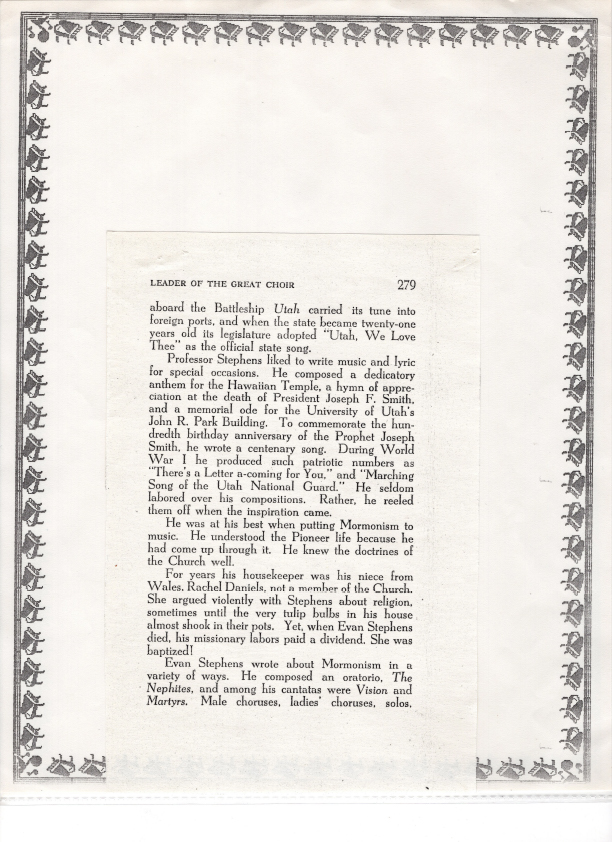 LEADER OF THE GREAT CHOIR 279
aboard the Battleship Utah carried its tune into
foreign ports, and when the state became twenty-one
years old its legislature adopted "Utah, We Love
Thee" as the official state song.
Professor Stephens liked to write music and lyric
for special occasions. He composed a dedicatory
anthem for the Hawaiian Temple, a hymn of appre-
ciation at the death of President Joseph F. Smith,
and a memorial ode for the University of Utah's
John R. Park Building. To commemorate the hun-
dredth birthday anniversary of the Prophet Joseph
Smith, he wrote a centenary song. During World
War I he produced such patriotic numbers as
"There's a Letter a-coming for You," and "Marching
Song of the Utah National Guard." He seldom
labored over his compositions. Rather, he reeled
them off when the inspiration came.
He was at his best when putting Mormonism to
music. He understood the Pioneer life because he
had come up through it. He knew the doctrines of
the Church well.
For years his housekeeper was his niece from
Wales, Rachel Daniels, not a member of the Church.
She argued violently with Stephens about religion,
sometimes until the very tulip bulbs in his house
almost shook in their pots. Yet, when Evan Stephens
died, his missionary labors paid a dividend. She was
baptized!
Evan Stephens wrote about Mormonism in a
variety of ways. He composed an oratorio, The
Nephites, and among his cantatas were Vision and
Martyrs. Male choruses, ladies' choruses, solos,